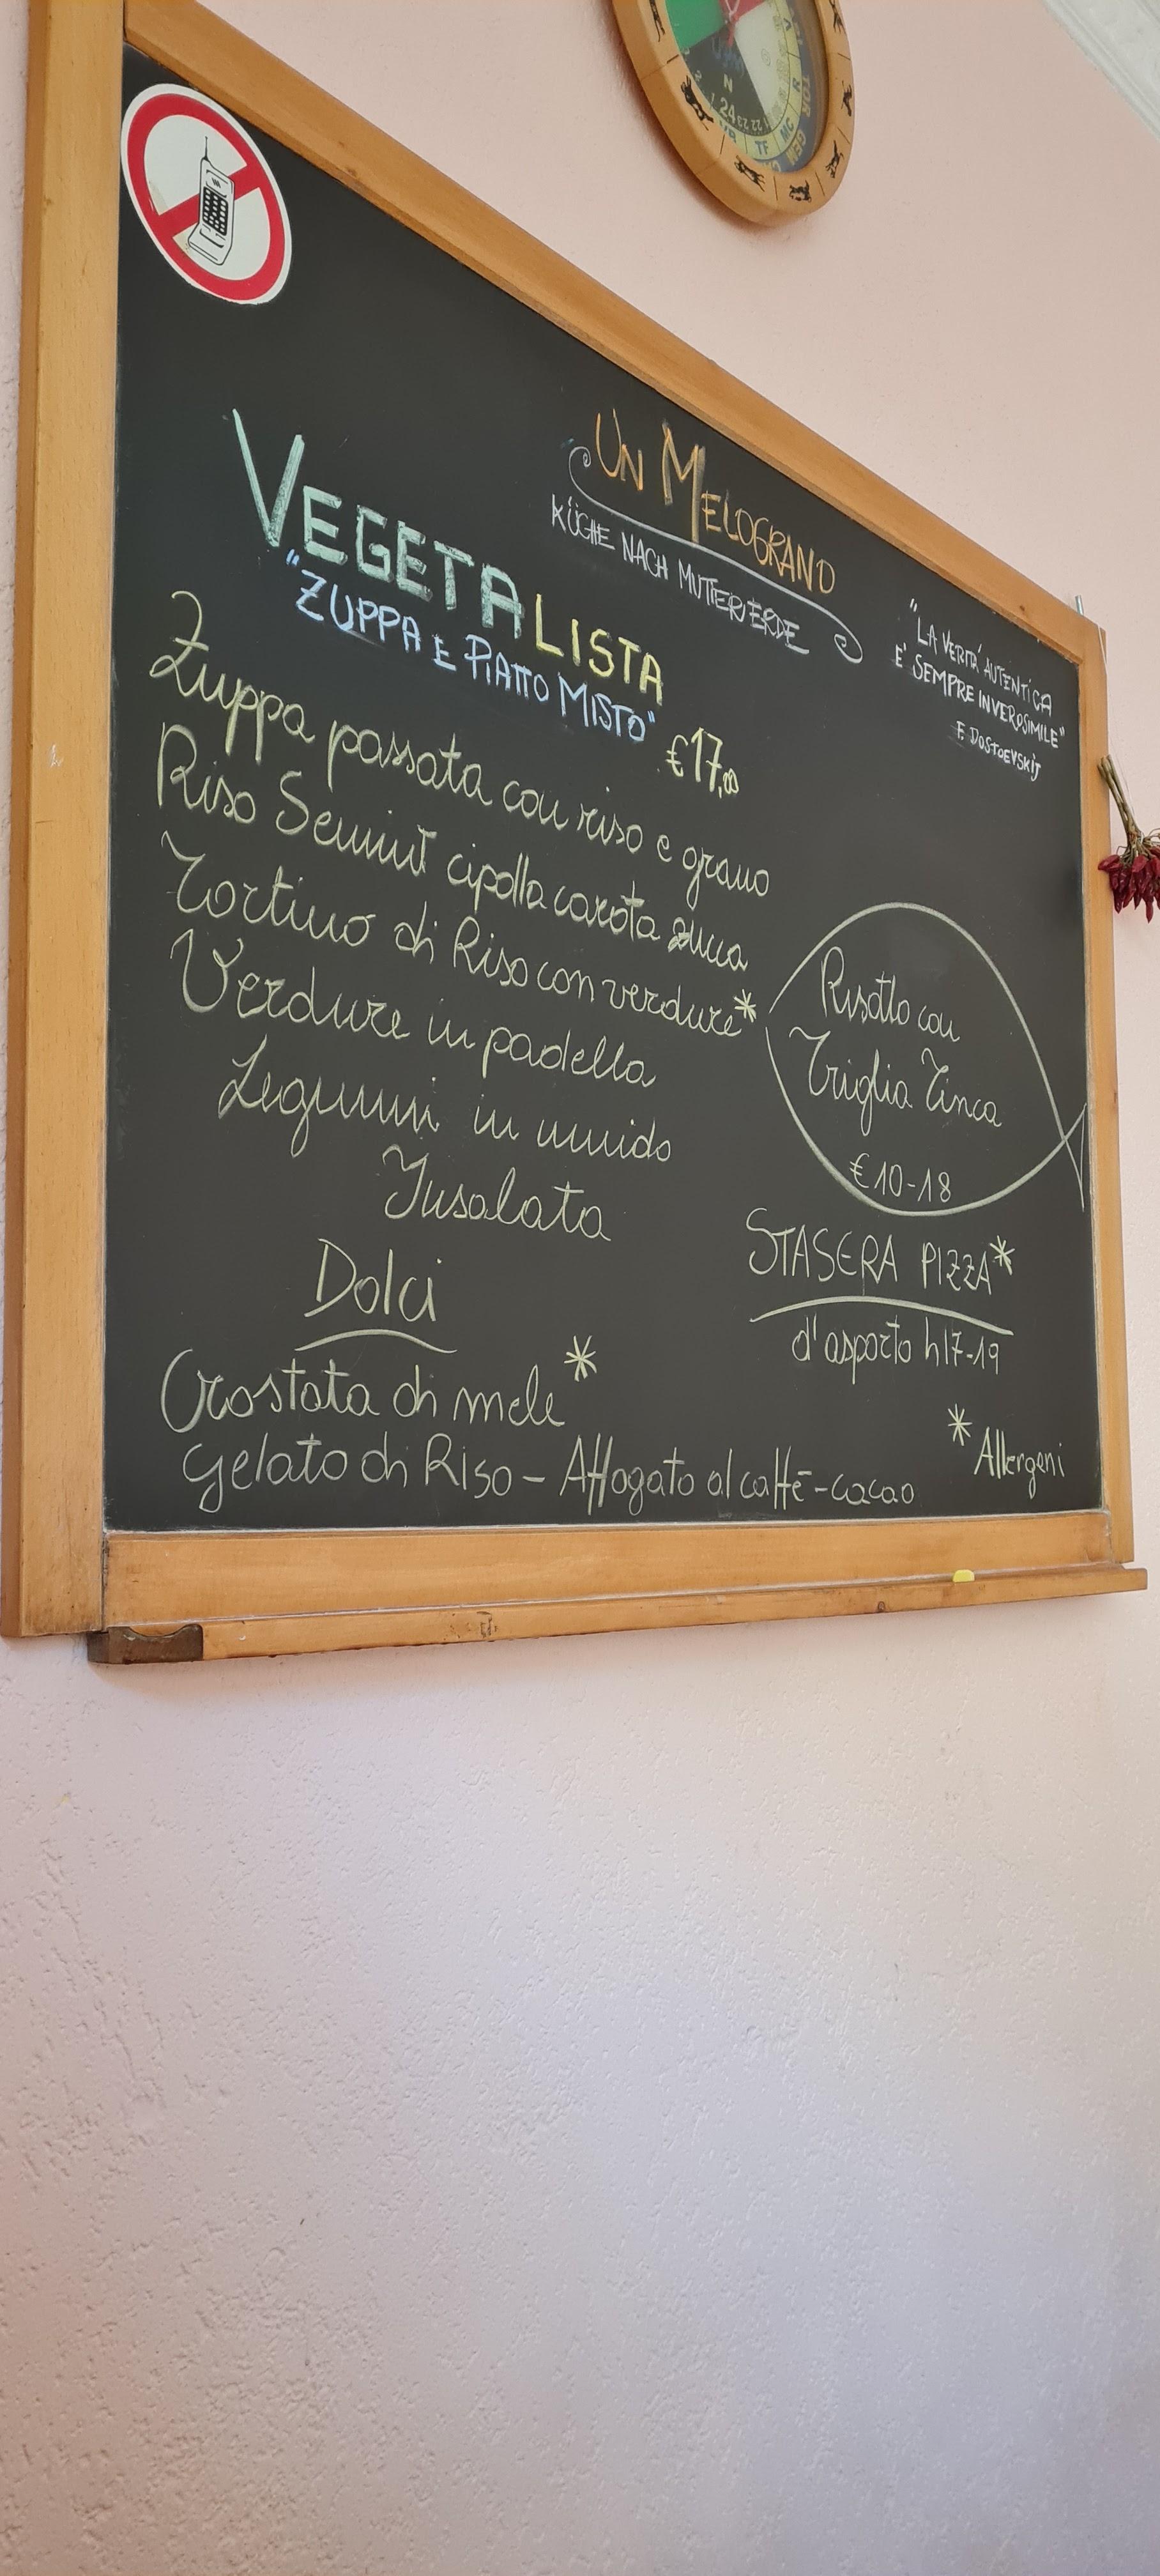 UN MELOGRANO
KÜCHE NACH MUTTER ERDE
"LA VERITÀ AUTENTICA
E' SEMPRE INVEROSIMILE"
F. DOSTOEVSKIJ
VEGETALISTA
"ZUPPA E PIATTO MISTO"
€17,00
Zuppa passata con riso e grano
Riso Semint cipolla carota zucca
Tortino di Riso con verdure*
Verdure in padella
Legumi in umido
Insalata
Dolci
Crostata di mele*
Gelato di Riso - Affogato al caffè - cacao
Risotto con
Triglia Tinca
€10-18
STASERA PIZZA*
d'asporto h17-19
* Allergeni
N
24 23 22
TF
MC
GEM
TOR